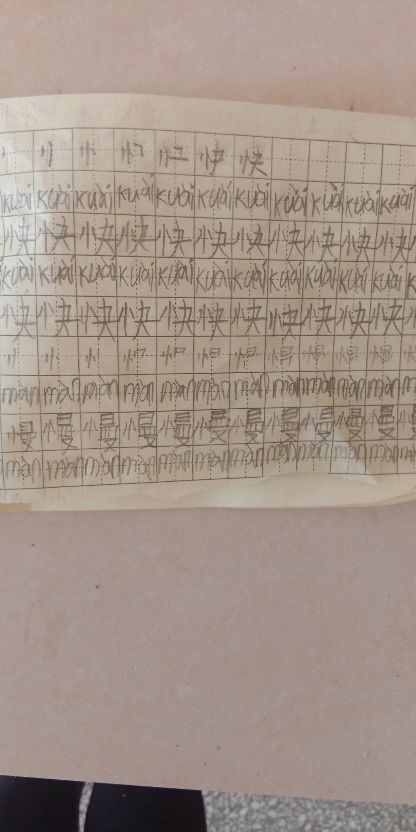 丶 丷 忄 忄フ 忄ユ 忄尹 快
kuài kuài kuài kuài kuài kuài kuài kuài kuài kuài kuài
快 快 快 快 快 快 快 快 快 快 快
kuài kuài kuài kuài kuài kuài kuài kuài kuài kuài
快 快 快 快 快 快 快 快 快 快 快
màn màn màn màn màn màn màn màn màn màn
慢 慢 慢 慢 慢 慢 慢 慢 慢 慢 慢
màn màn màn màn màn màn màn màn màn màn màn